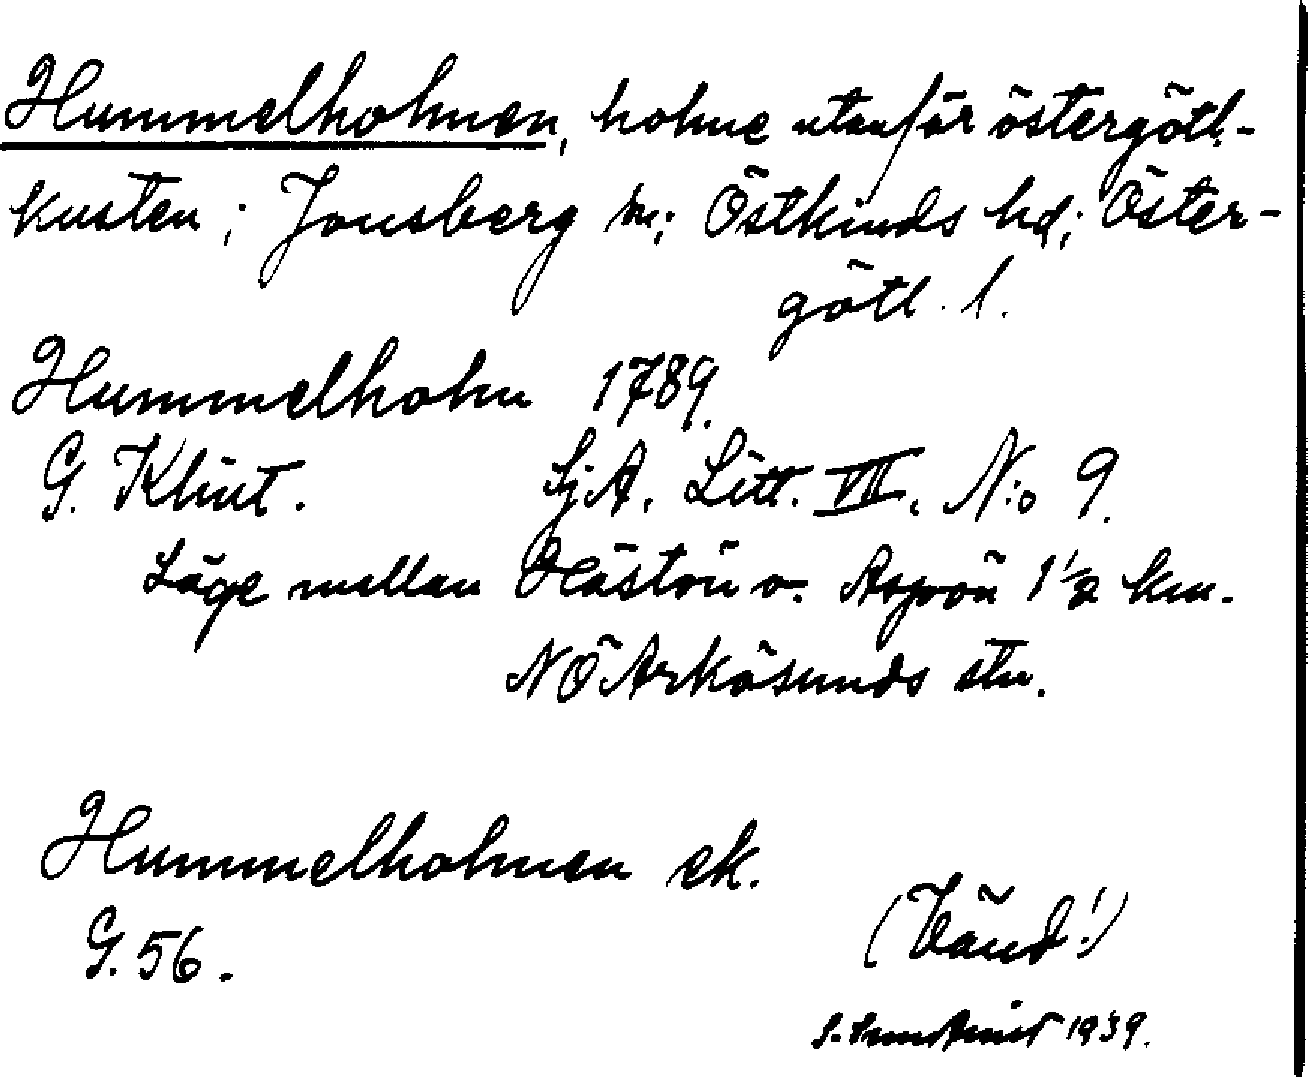 Hummelholmen, holme utanför östergötl.-
kusten; Jonsberg sn; Östkinds hd; Öster-
götl. l.
Hummelholm 1789.
G. Klint. SjA. Litt. VII. N:o 9.
Läge mellan Hästön o. Aspön 1 1/2 km.
NÖ Arkösunds stn.
Hummelholmen ek.
G. 56.
(Vänd!)
S. 1939.